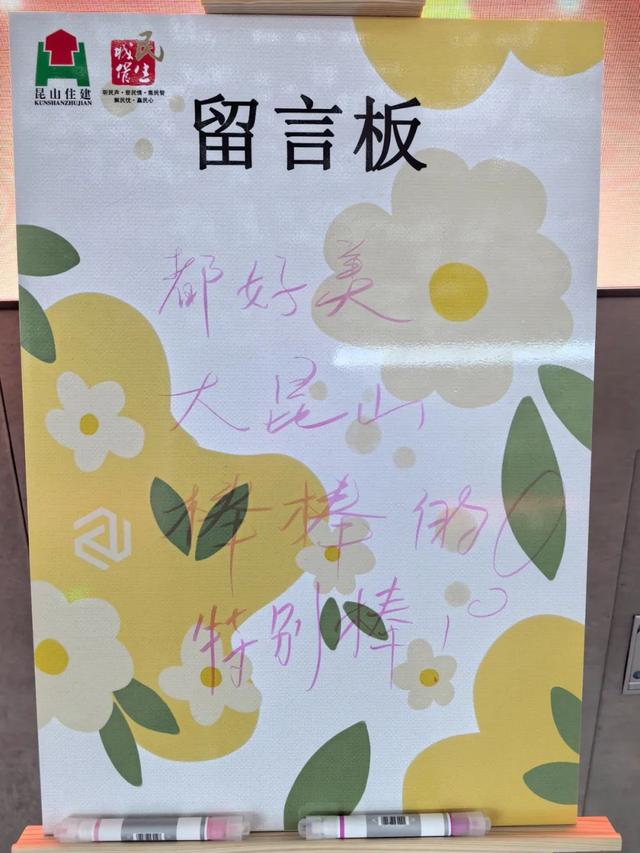 昆山住建
KUNSHANZHUJIAN
民生
听民声·察民情·集民智
解民忧·赢民心
留言板
都好美
大昆山
棒棒的
特别棒!